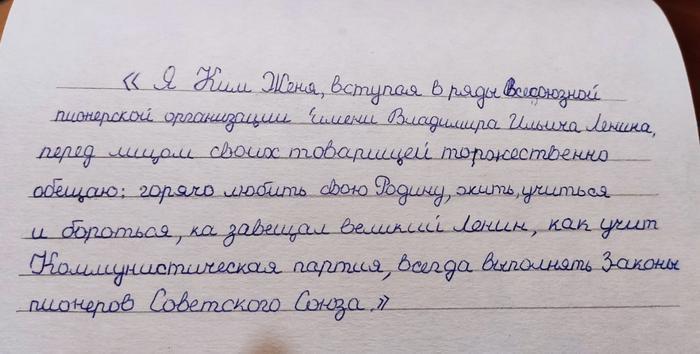 « Я Ким Женя, вступая в ряды Всесоюзной
пионерской организации имени Владимира Ильича Ленина,
перед лицом своих товарищей торжественно
обещаю: горячо любить свою Родину, жить, учиться
и бороться, ка завещал великий Ленин, как учит
Коммунистическая партия, всегда выполнять Законы
пионеров Советского Союза.»